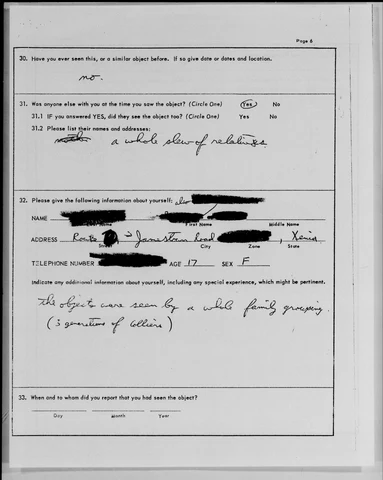 Page 6
30. Have you ever seen this, or a similar object before. If so give date or dates and location.
no.
31. Was anyone else with you at the time you saw the object? (Circle One) Yes No
31.1 IF you answered YES, did they see the object too? (Circle One) Yes No
31.2 Please list their names and addresses:
a whole slew of relatives
32. Please give the following information about yourself:
NAME
Last Name First Name Middle Name
ADDRESS Route Jamestown Road , Xenia
Street City Zone State
TELEPHONE NUMBER AGE 17 SEX F
Indicate any additional information about yourself, including any special experience, which might be pertinent.
the objects were seen by a whole family grouping.
(3 generations of Colliers)
33. When and to whom did you report that you had seen the object?
Day Month Year